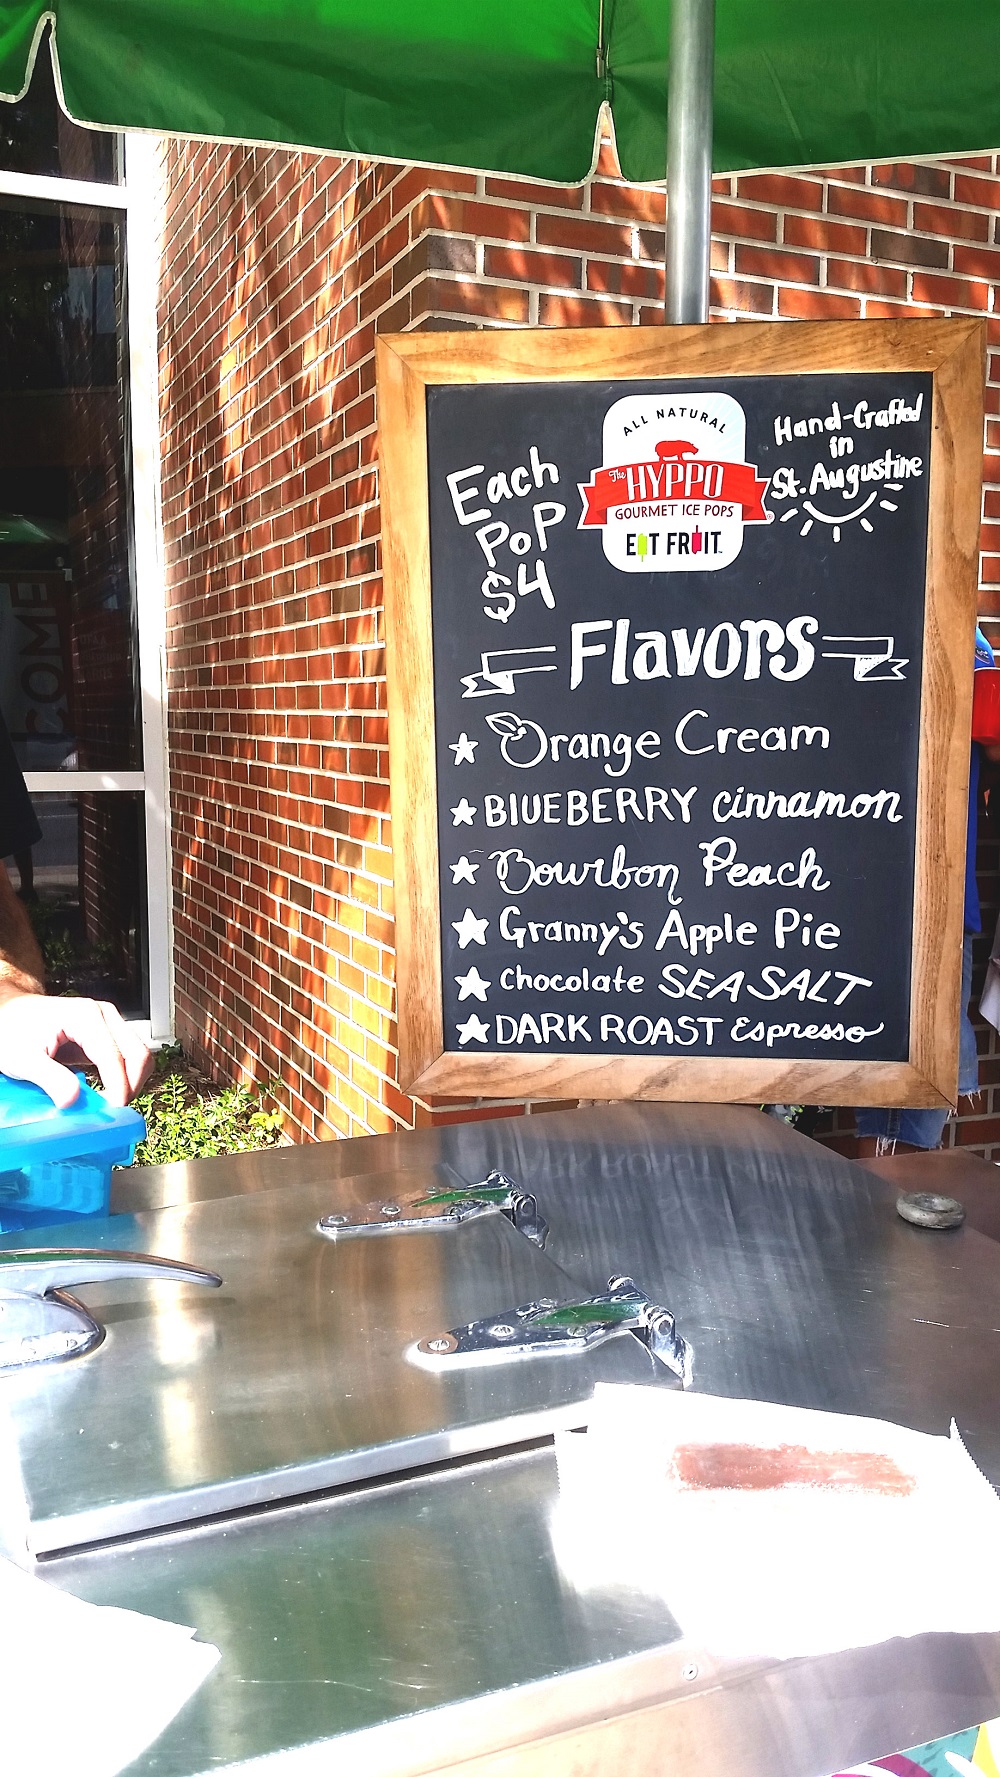 Each
PoP
$4
ALL NATURAL
The HYPPO
GOURMET ICE POPS
EAT FRUIT
Hand-Crafted
in
St. Augustine
Flavors
Orange Cream
BlUEBERRY cinnamon
Bourbon Peach
Granny's Apple Pie
Chocolate SEA SALT
DARK ROAST Espresso